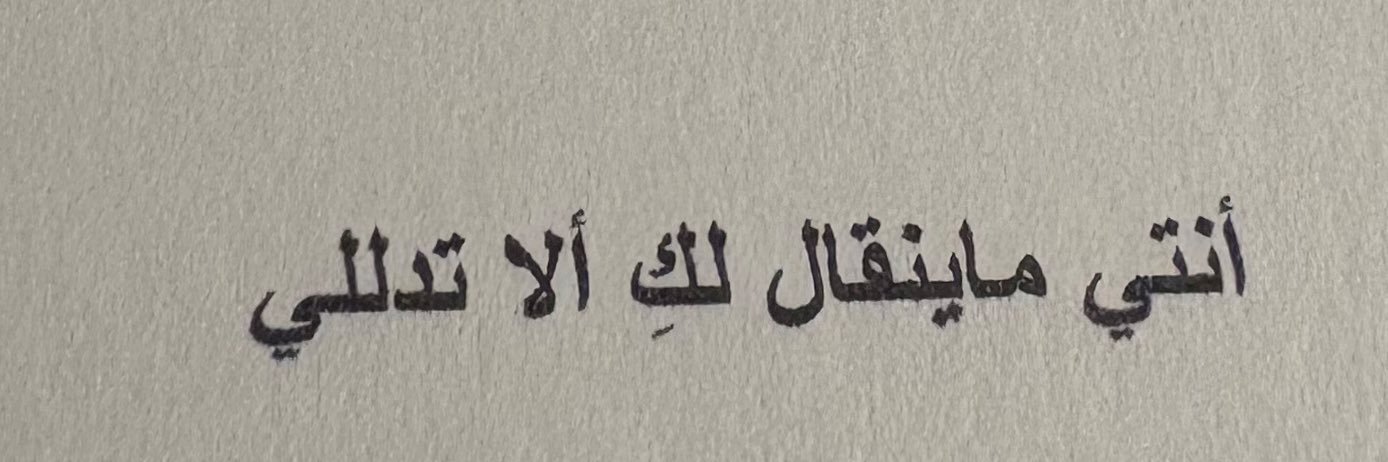 أنتي ماينقال لكِ ألا تدللي